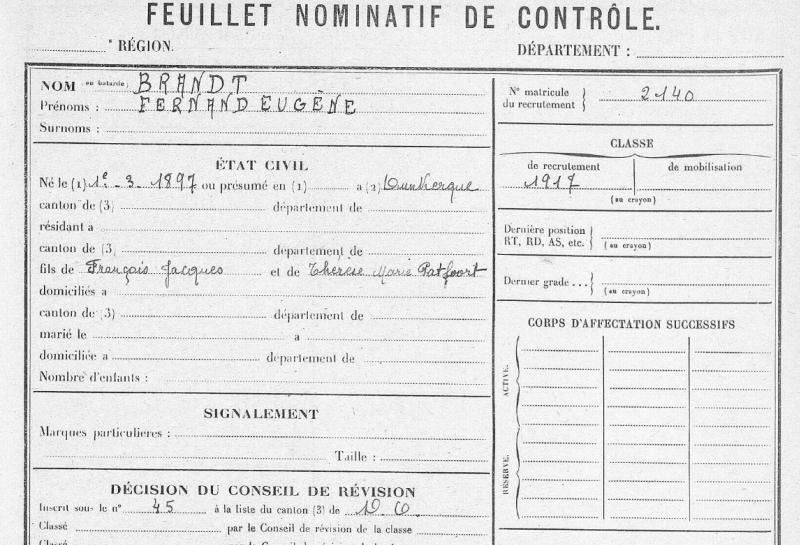 FEUILLET NOMINATIF DE CONTRÔLE.
e RÉGION.
DÉPARTEMENT :
NOM en batarde : BRANDT
Prénoms : FERNAND EUGÈNE
Surnoms :
ÉTAT CIVIL
Né le (1) 1e - 3 - 1897 ou présumé en (1) a (2) Dunkerque
canton de (3) département de
résidant a
canton de (3) département de
fils de François Jacques et de Thérèse Marie Patfoort
domiciliés a
canton de (3) département de
marié le a
domiciliée a département de
Nombre d'enfants :
SIGNALEMENT
Marques particulieres :
Taille :
DÉCISION DU CONSEIL DE RÉVISION
Inscrit sous le n° 45 à la liste du canton (3) de
Classé par le Conseil de révision de la classe
Classé par le Conseil de révision de la
N° matricule du recrutement 2140
CLASSE
de recrutement de mobilisation
1917
(au crayon)
Dernière position
RT, RD, AS, etc. (au crayon)
Dernier grade ... (au crayon)
CORPS D'AFFECTATION SUCCESSIFS
ACTIVE.
RÉSERVE.